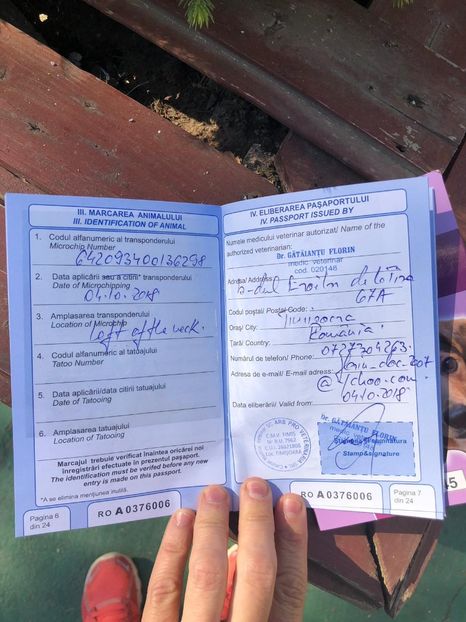 III. MARCAREA ANIMALULUI
III. IDENTIFICATION OF ANIMAL
1. Codul alfanumeric al transponderului
Microchip Number
642093400136298
2. Data aplicării sau a citirii* transponderului
Date of Microchipping
04.10.2018
3. Amplasarea transponderului
Location of Microchip
left of the neck.
4. Codul alfanumeric al tatuajului
Tatoo Number
5. Data aplicării/data citirii tatuajului
Date of Tatooing
6. Amplasarea tatuajului
Location of Tatooing
Marcajul trebuie verificat înaintea oricărei noi
înregistrări efectuate în prezentul pașaport.
The identification must be verified before any new
entry is made on this passport.
*A se elimina mențiunea inutilă.
Pagina 6
din 24
RO A 0376006
IV. ELIBERAREA PAȘAPORTULUI
IV. PASSPORT ISSUED BY
Numele medicului veterinar autorizat/ Name of the
authorized veterinarian:
Dr. GĂTĂIANȚU FLORIN
medic veterinar
cod. 020148
Adresa/ Address:
67A
Codul poștal/ Postal Code:
Oraș/ City:
Timișoara
Țară/ Country:
România
Numărul de telefon/ Phone:
Adresa de e-mail/ E-mail adress:
@yahoo.com.
04.10.2018
Data eliberării/ Valid from:
Dr. GĂTĂIANȚU FLORIN
medic veterinar
Stamp&signature
Pagina 7
din 24
RO A 0376006
5